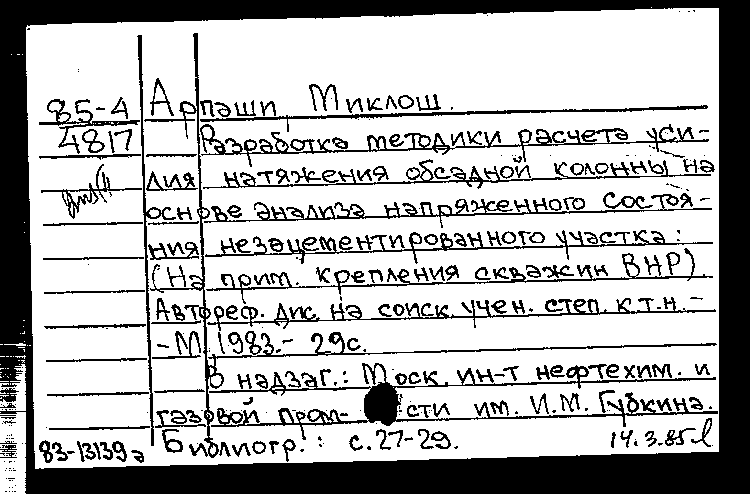 85-4 Арпаши, Миклош.
4817 Разработка методики расчета уси-
лия натяжения обсадной колонны на
основе анализа напряженного состоя-
ния незацементированного участка:
(На прим. крепления скважин ВНР).
Автореф. дис. на соиск. учен. степ. к.т.н. -
- М. 1983. - 29с.
В надзаг.: Моск. ин-т нефтехим. и
газовой пром- сти им. И.М. Губкина.
83-13139а Библиогр.: с. 27-29. 14.3.85